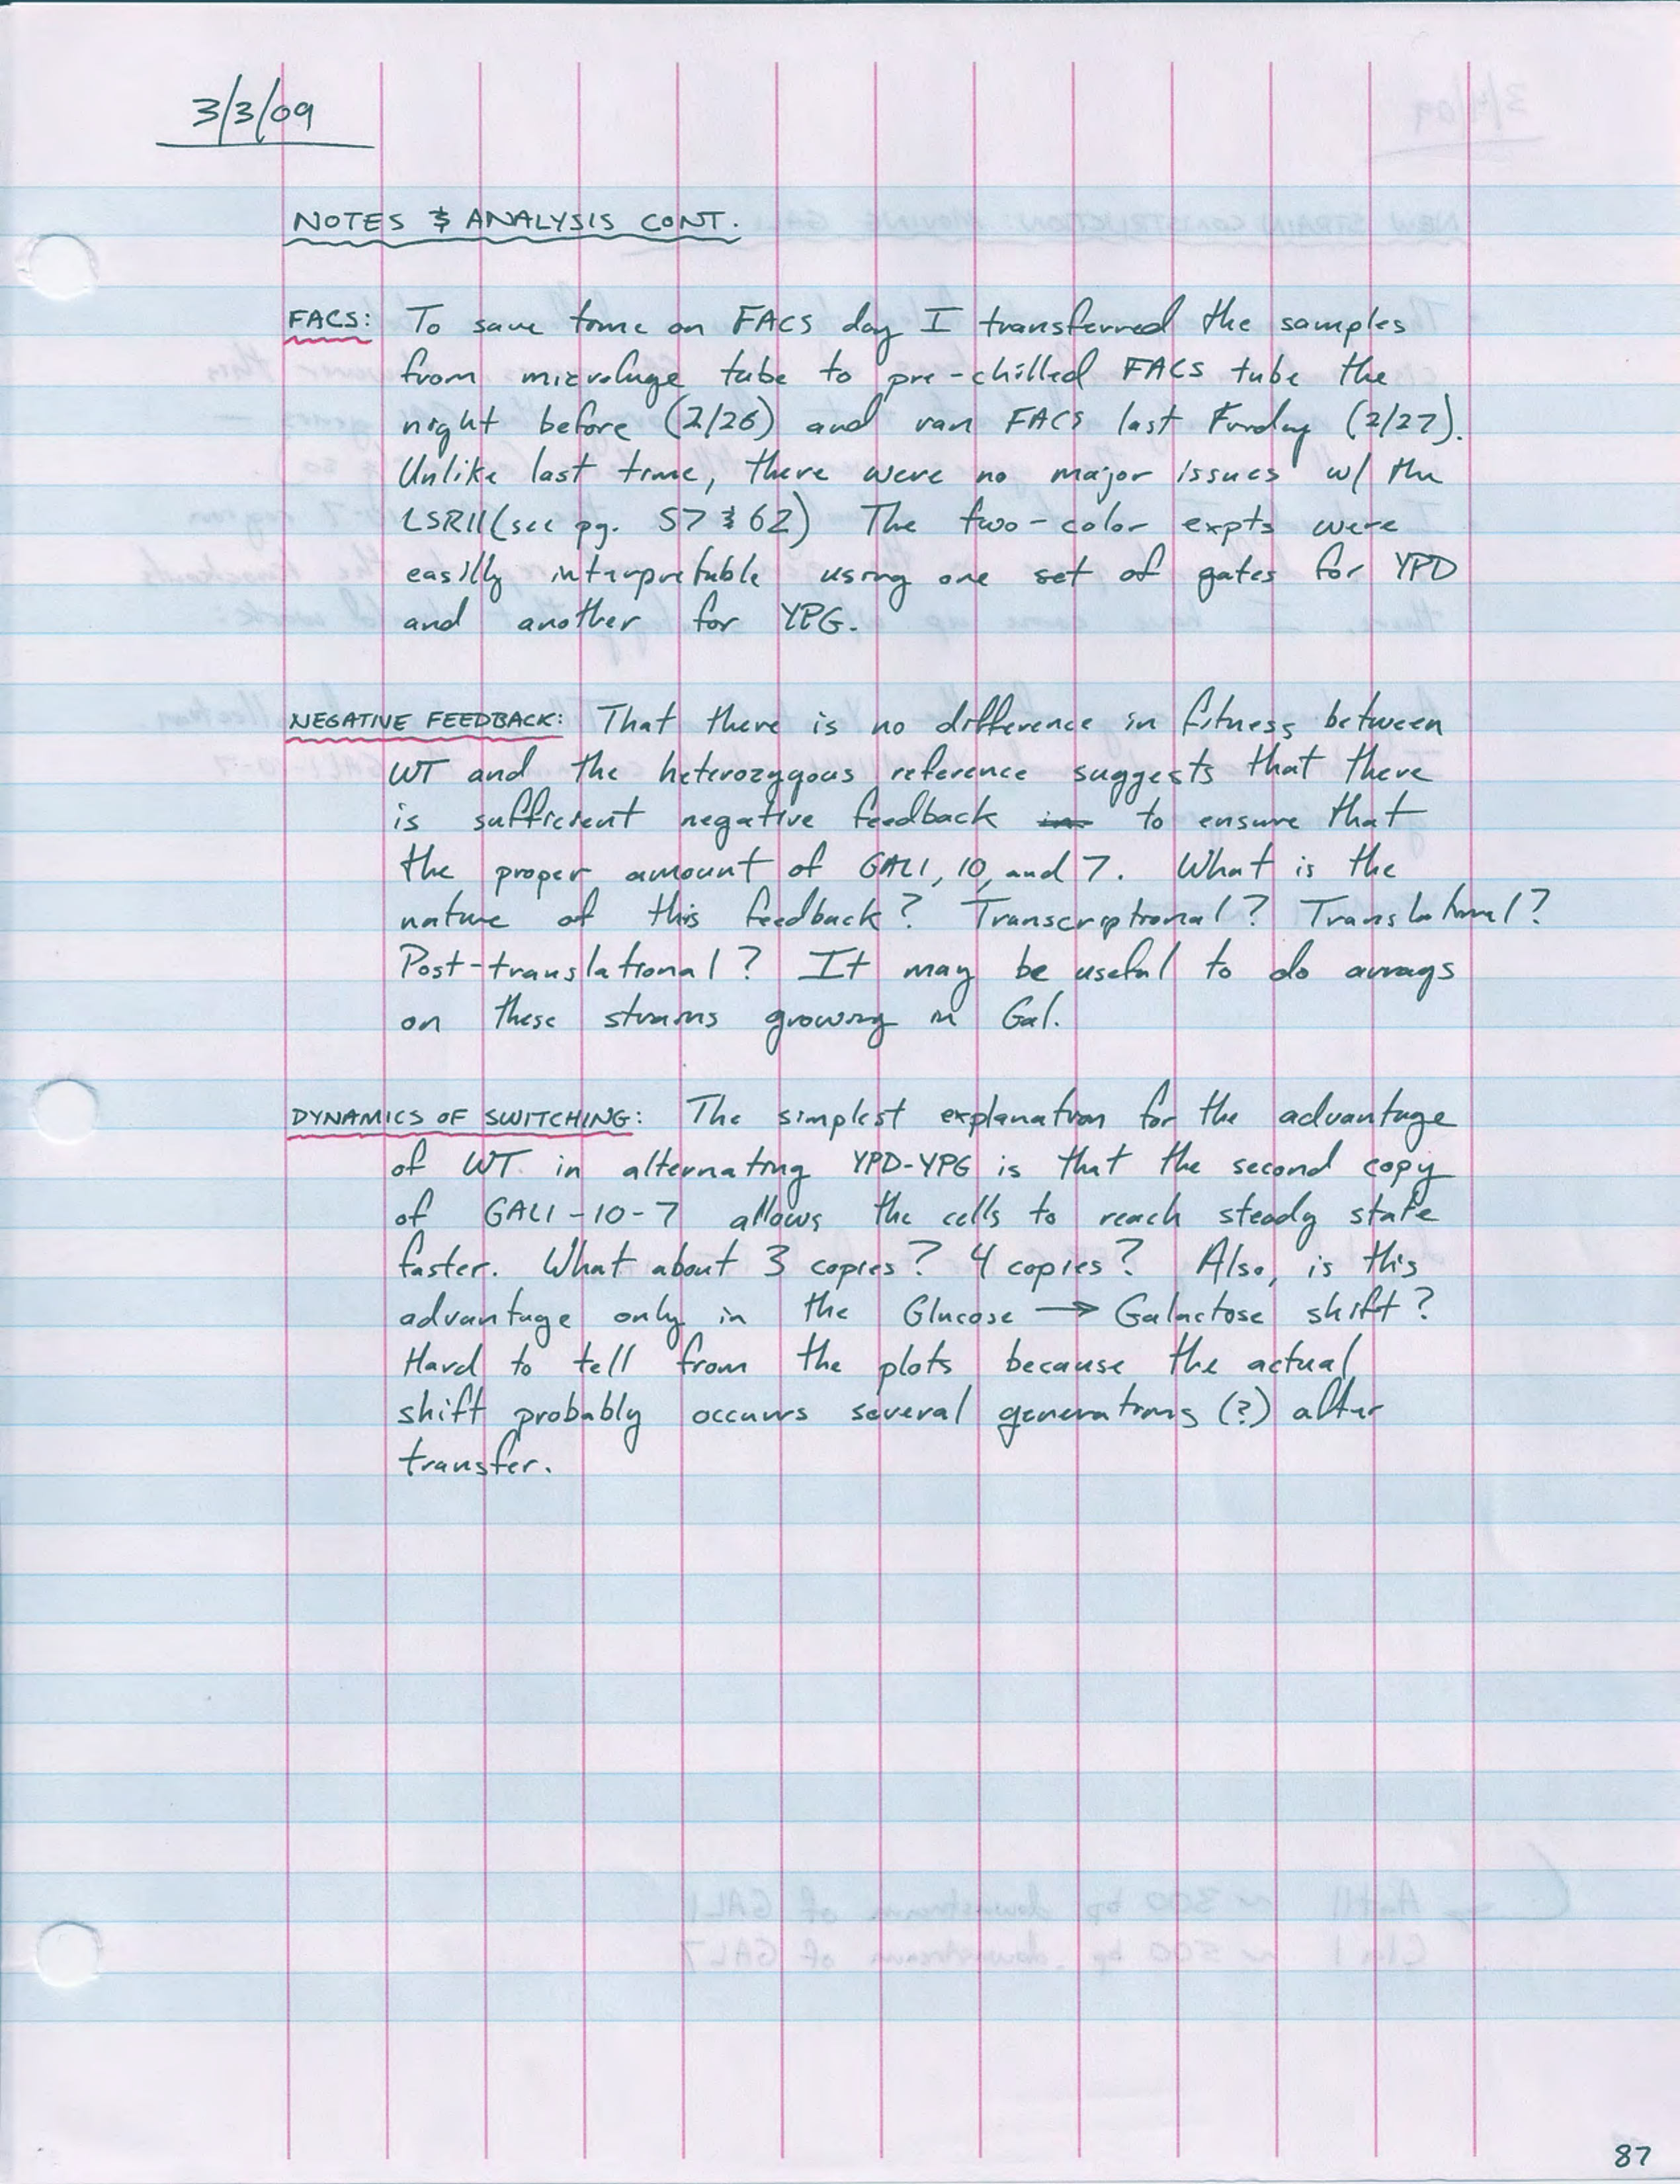 3/3/09
NOTES & ANALYSIS CONT.
FACS: To save time on FACS day I transferred the samples
from microfuge tube to pre-chilled FACS tube the
night before (2/26) and ran FACS last Friday (2/27).
Unlike last time, there were no major issues w/ the
LSRII (see pg. 57 & 62) The two-color expts were
easilly interpretable using one set of gates for YPD
and another for YPG.
NEGATIVE FEEDBACK: That there is no difference in fitness between
WT and the heterozygous reference suggests that there
is sufficient negative feedback in to ensure that
the proper amount of GAL1, 10, and 7. What is the
nature of this feedback? Transcriptional? Translational?
Post-translational? It may be useful to do arrays
on these strains growing in Gal.
DYNAMICS OF SWITCHING: The simplest explanation for the advantage
of WT in alternating YPD-YPG is that the second copy
of GAL1-10-7 allows the cells to reach steady state
faster. What about 3 copies? 4 copies? Also, is this
advantage only in the Glucose → Galactose shift?
Hard to tell from the plots because the actual
shift probably occurrs several generations (?) after
transfer.
87